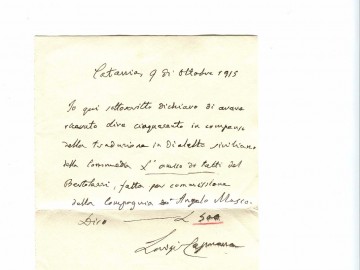 Catania 9 di ottobre 1915
Io qui sottoscritto dichiaro di avere
ricevuto lire cinquecento in compenso
della traduzione in Dialetto siciliano
della Commedia L'amico di tutti del
Bertolazzi, fatta per commissione
dalla Compagnia Angelo Musco.
Dico L 500
Luigi Capuana